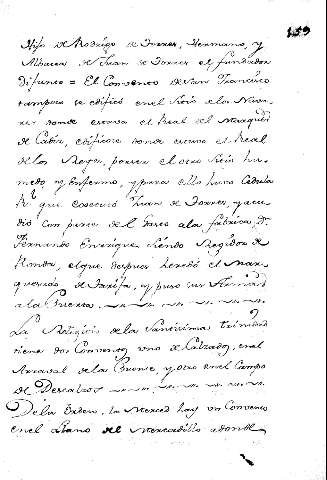 159
Hijo de Rodrigo de Torres, Hermano, y
Albacea de Juan de Torres el fundador
difunto = El Convento de San Francisco
tampoco se edificó en el Sitio de los
donde estava el Real del Marques
de Cadiz, edificose donde estuvo el Real
de los Reyes, por ser el otro Sitio hu-
medo y Enfermo, y para ello huvo Cedula
Rl. que executó Juan de Torres, y acu-
dió con parte del a la fabrica Dn.
Fernando Enrriquez siendo Regidor de
Ronda, el que despues heredó el Mar-
quesado de Tarifa, y puso sus Armas
a la Puerta.
La Religion de la Santisima Trinidad
tiene dos Conventos, uno de Calzados, en el
Arraval de la Puente, y otro en el Campo
de Descalzos
De la Orden la Merced hay un Convento
en el Llano del Mercadillo adonde